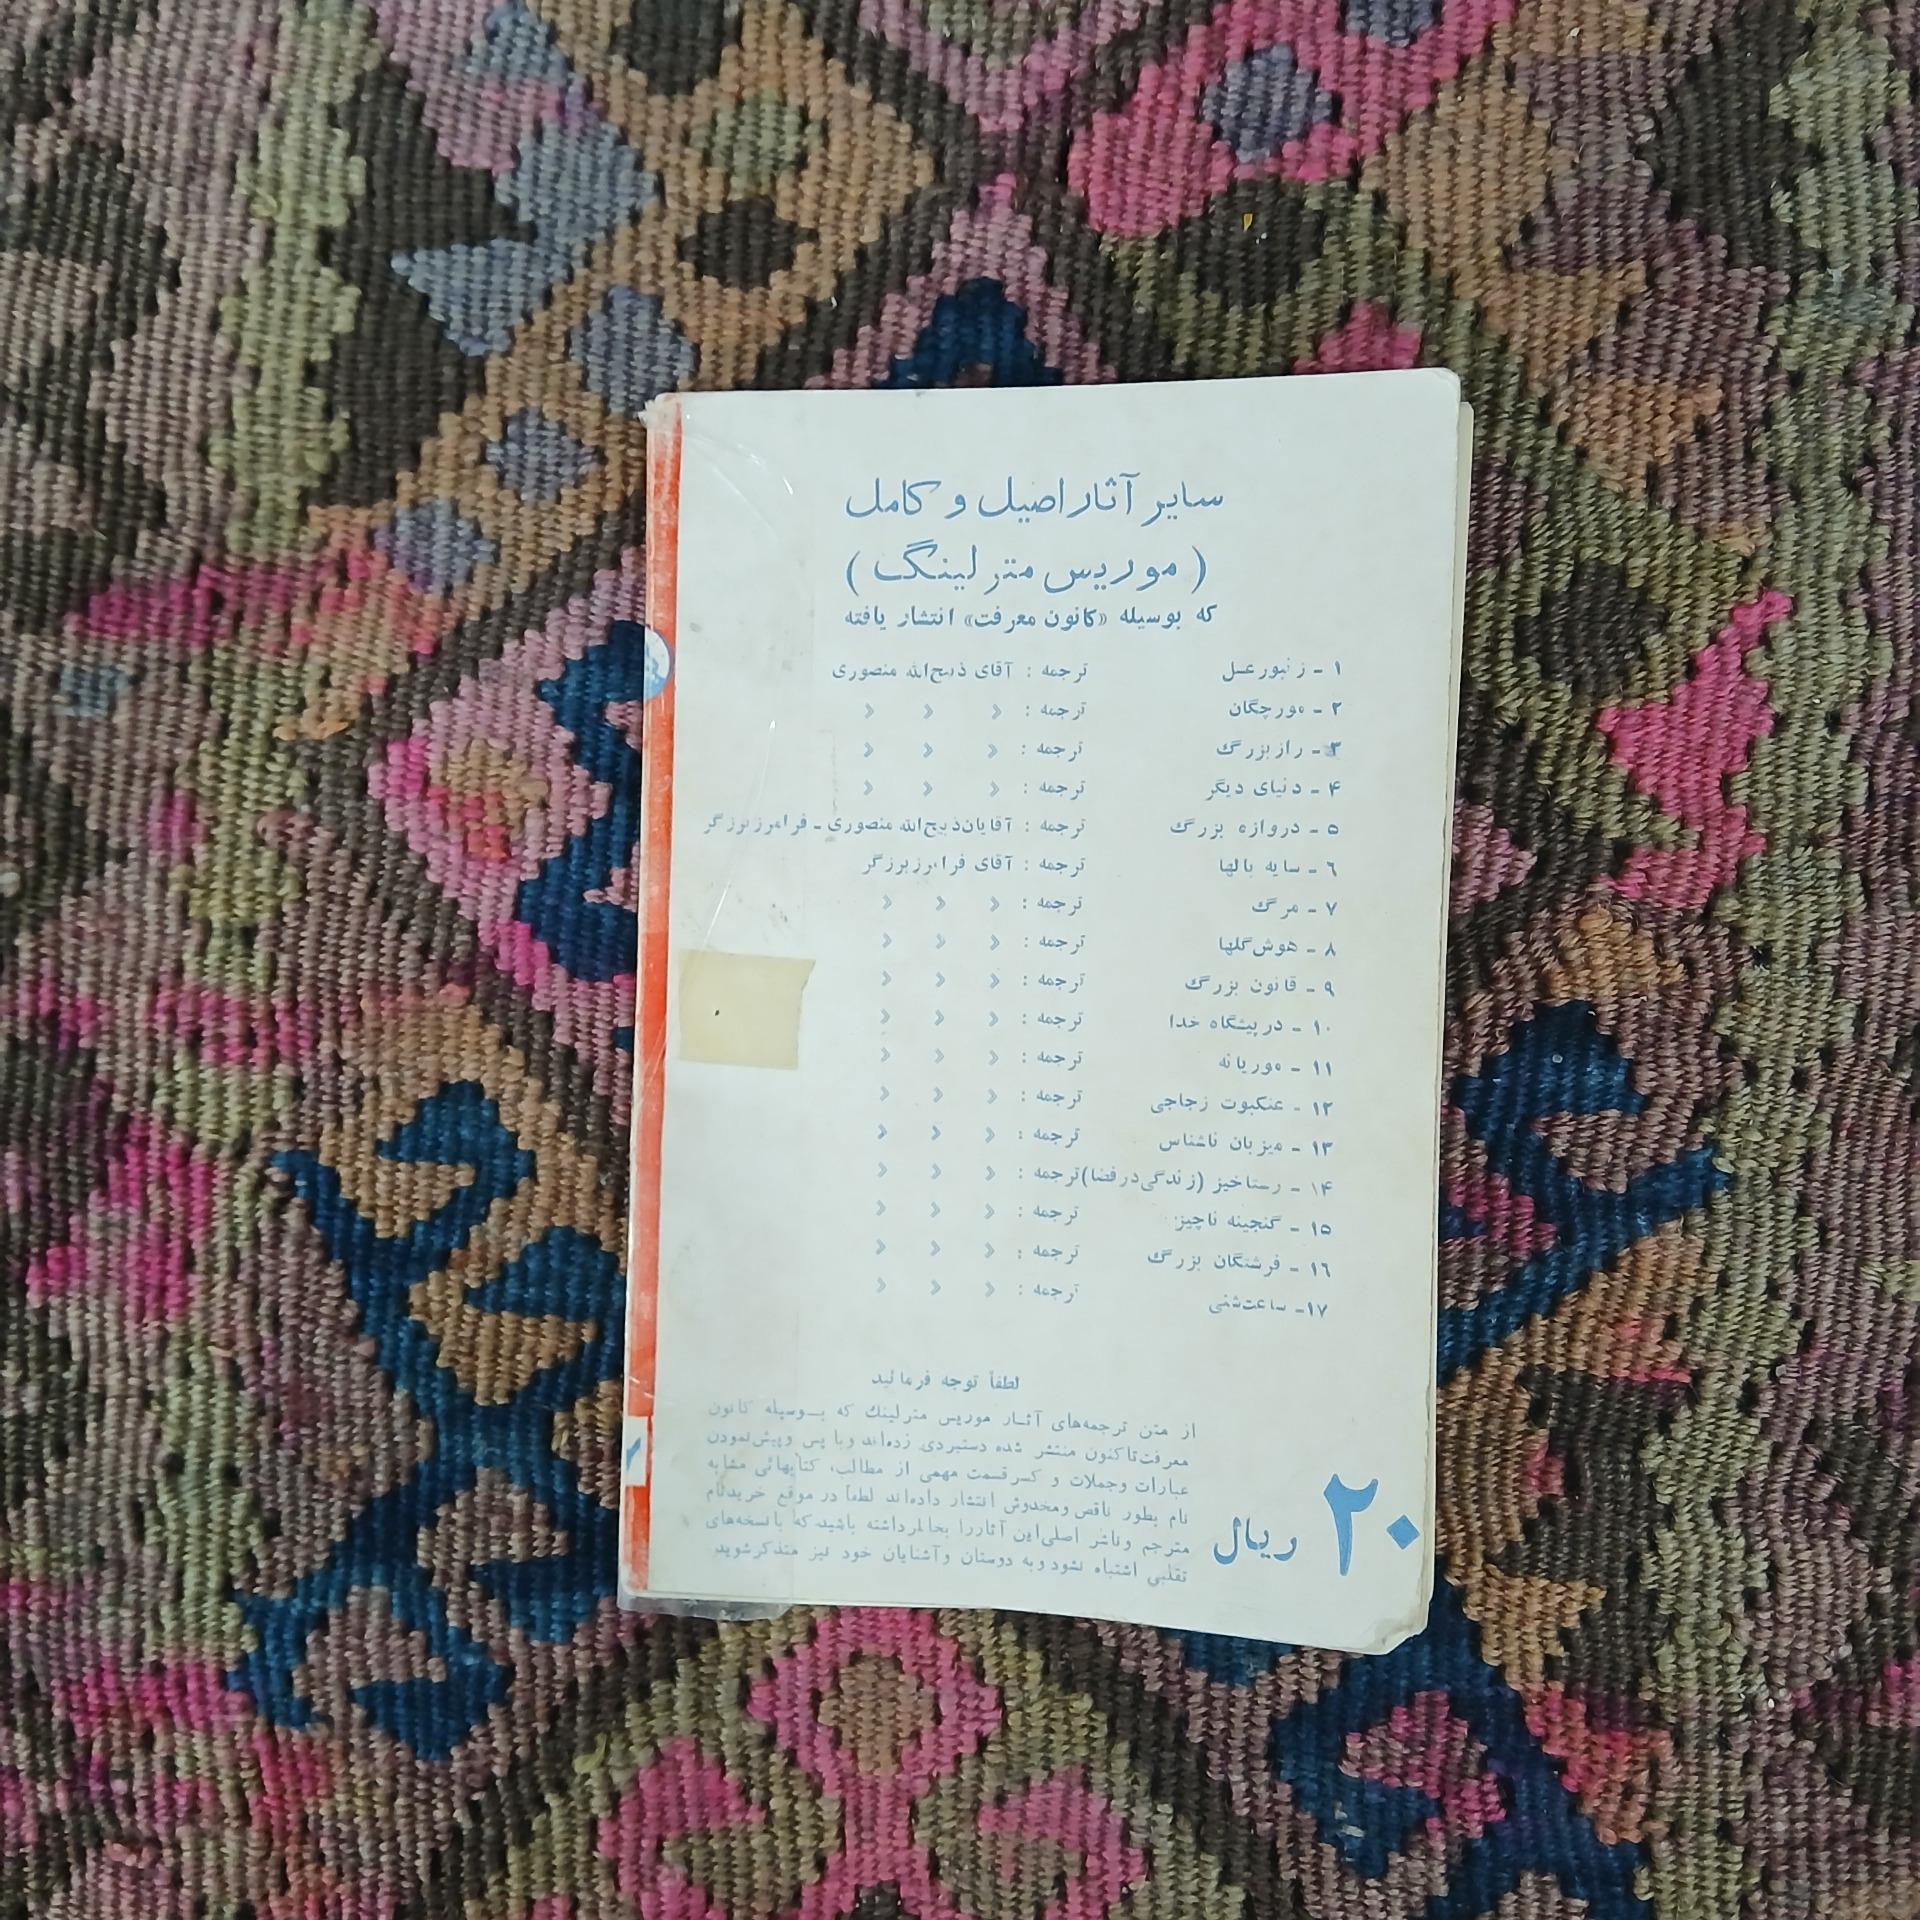 سایر آثار اصیل و کامل
( موریس مترلینگ )
که بوسیله «کانون معرفت» انتشار یافته
۱ - زنبور عسل ترجمه : آقای ذبیح‌الله منصوری
۲ - مورچگان ترجمه : » » »
۳ - راز بزرگ ترجمه : » » »
۴ - دنیای دیگر ترجمه : » » »
۵ - دروازه بزرگ ترجمه : آقایان ذبیح‌الله منصوری - فرامرز برزگر
۶ - سایه بالها ترجمه : آقای فرامرز برزگر
۷ - مرگ ترجمه : » » »
۸ - هوش گلها ترجمه : » » »
۹ - قانون بزرگ ترجمه : » » »
۱۰ - در پیشگاه خدا ترجمه : » » »
۱۱ - موریانه ترجمه : » » »
۱۲ - عنکبوت زجاجی ترجمه : » » »
۱۳ - میزبان ناشناس ترجمه : » » »
۱۴ - رستاخیز (زندگی در فضا) ترجمه : » » »
۱۵ - گنجینه ناچیز ترجمه : » » »
۱۶ - فرشتگان بزرگ ترجمه : » » »
۱۷ - ساعت شنی ترجمه : » » »
لطفاً توجه فرمائید
از متن ترجمه‌های آثار موریس مترلینک که بوسیله کانون
معرفت تاکنون منتشر شده دستبردی زده‌اند و با پس و پیش نمودن
عبارات و جملات و کسر قسمت مهمی از مطالب، کتابهائی مشابه
نام بطور ناقص و مخدوش انتشار داده‌اند لطفاً در موقع خرید نام
مترجم و ناشر اصلی این آثار را بخاطر داشته باشید که با نسخه‌های
تقلبی اشتباه نشود و به دوستان و آشنایان خود نیز متذکر شوید.
۲۰ ریال